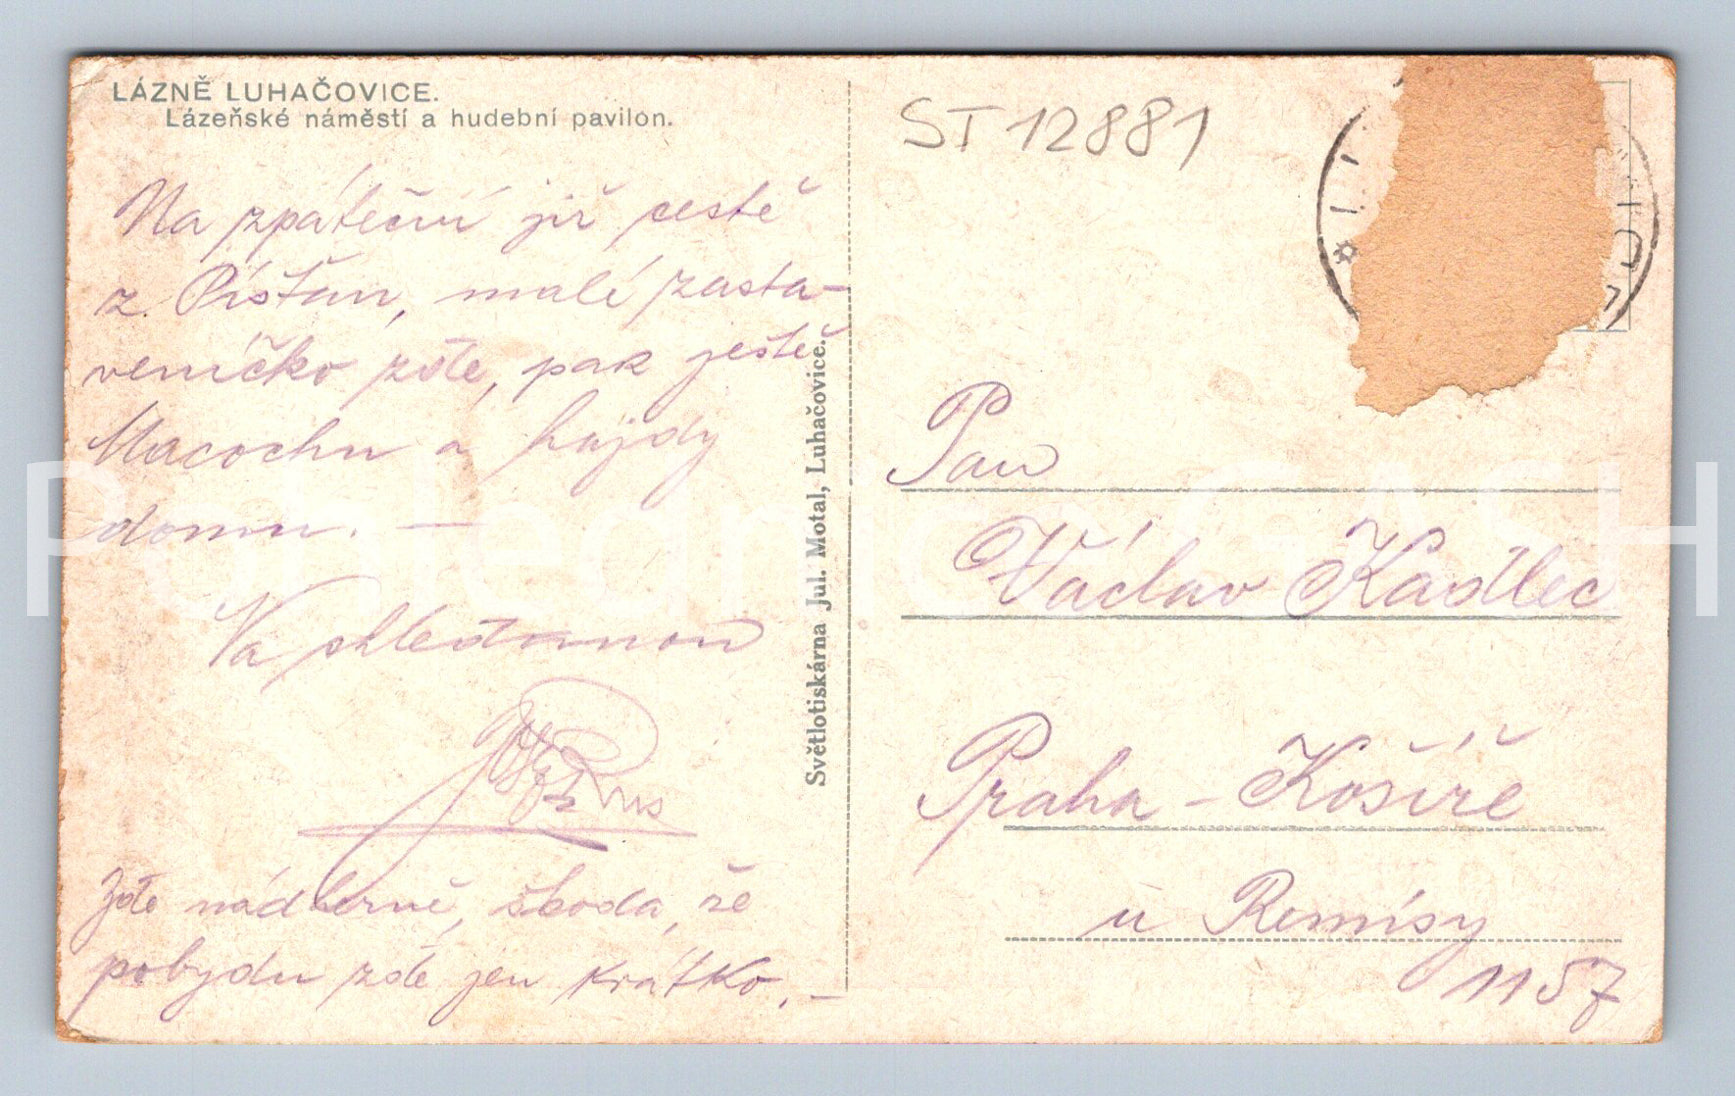 LÁZNĚ LUHAČOVICE.
Lázeňské náměstí a hudební pavilon.
Na zpáteční již cestě
z Píšťan, malé zasta-
veníčko zde, pak ještě
Macochu a hajdy
domu. —
Na shledanou
Zde nádherně, škoda, že
pobydu zde jen krátko. —
Světlotiskárna Jul. Motal, Luhačovice.
ST 12881
Pan
Václav Kadlec
Praha - Košíře
u Remísy
1157